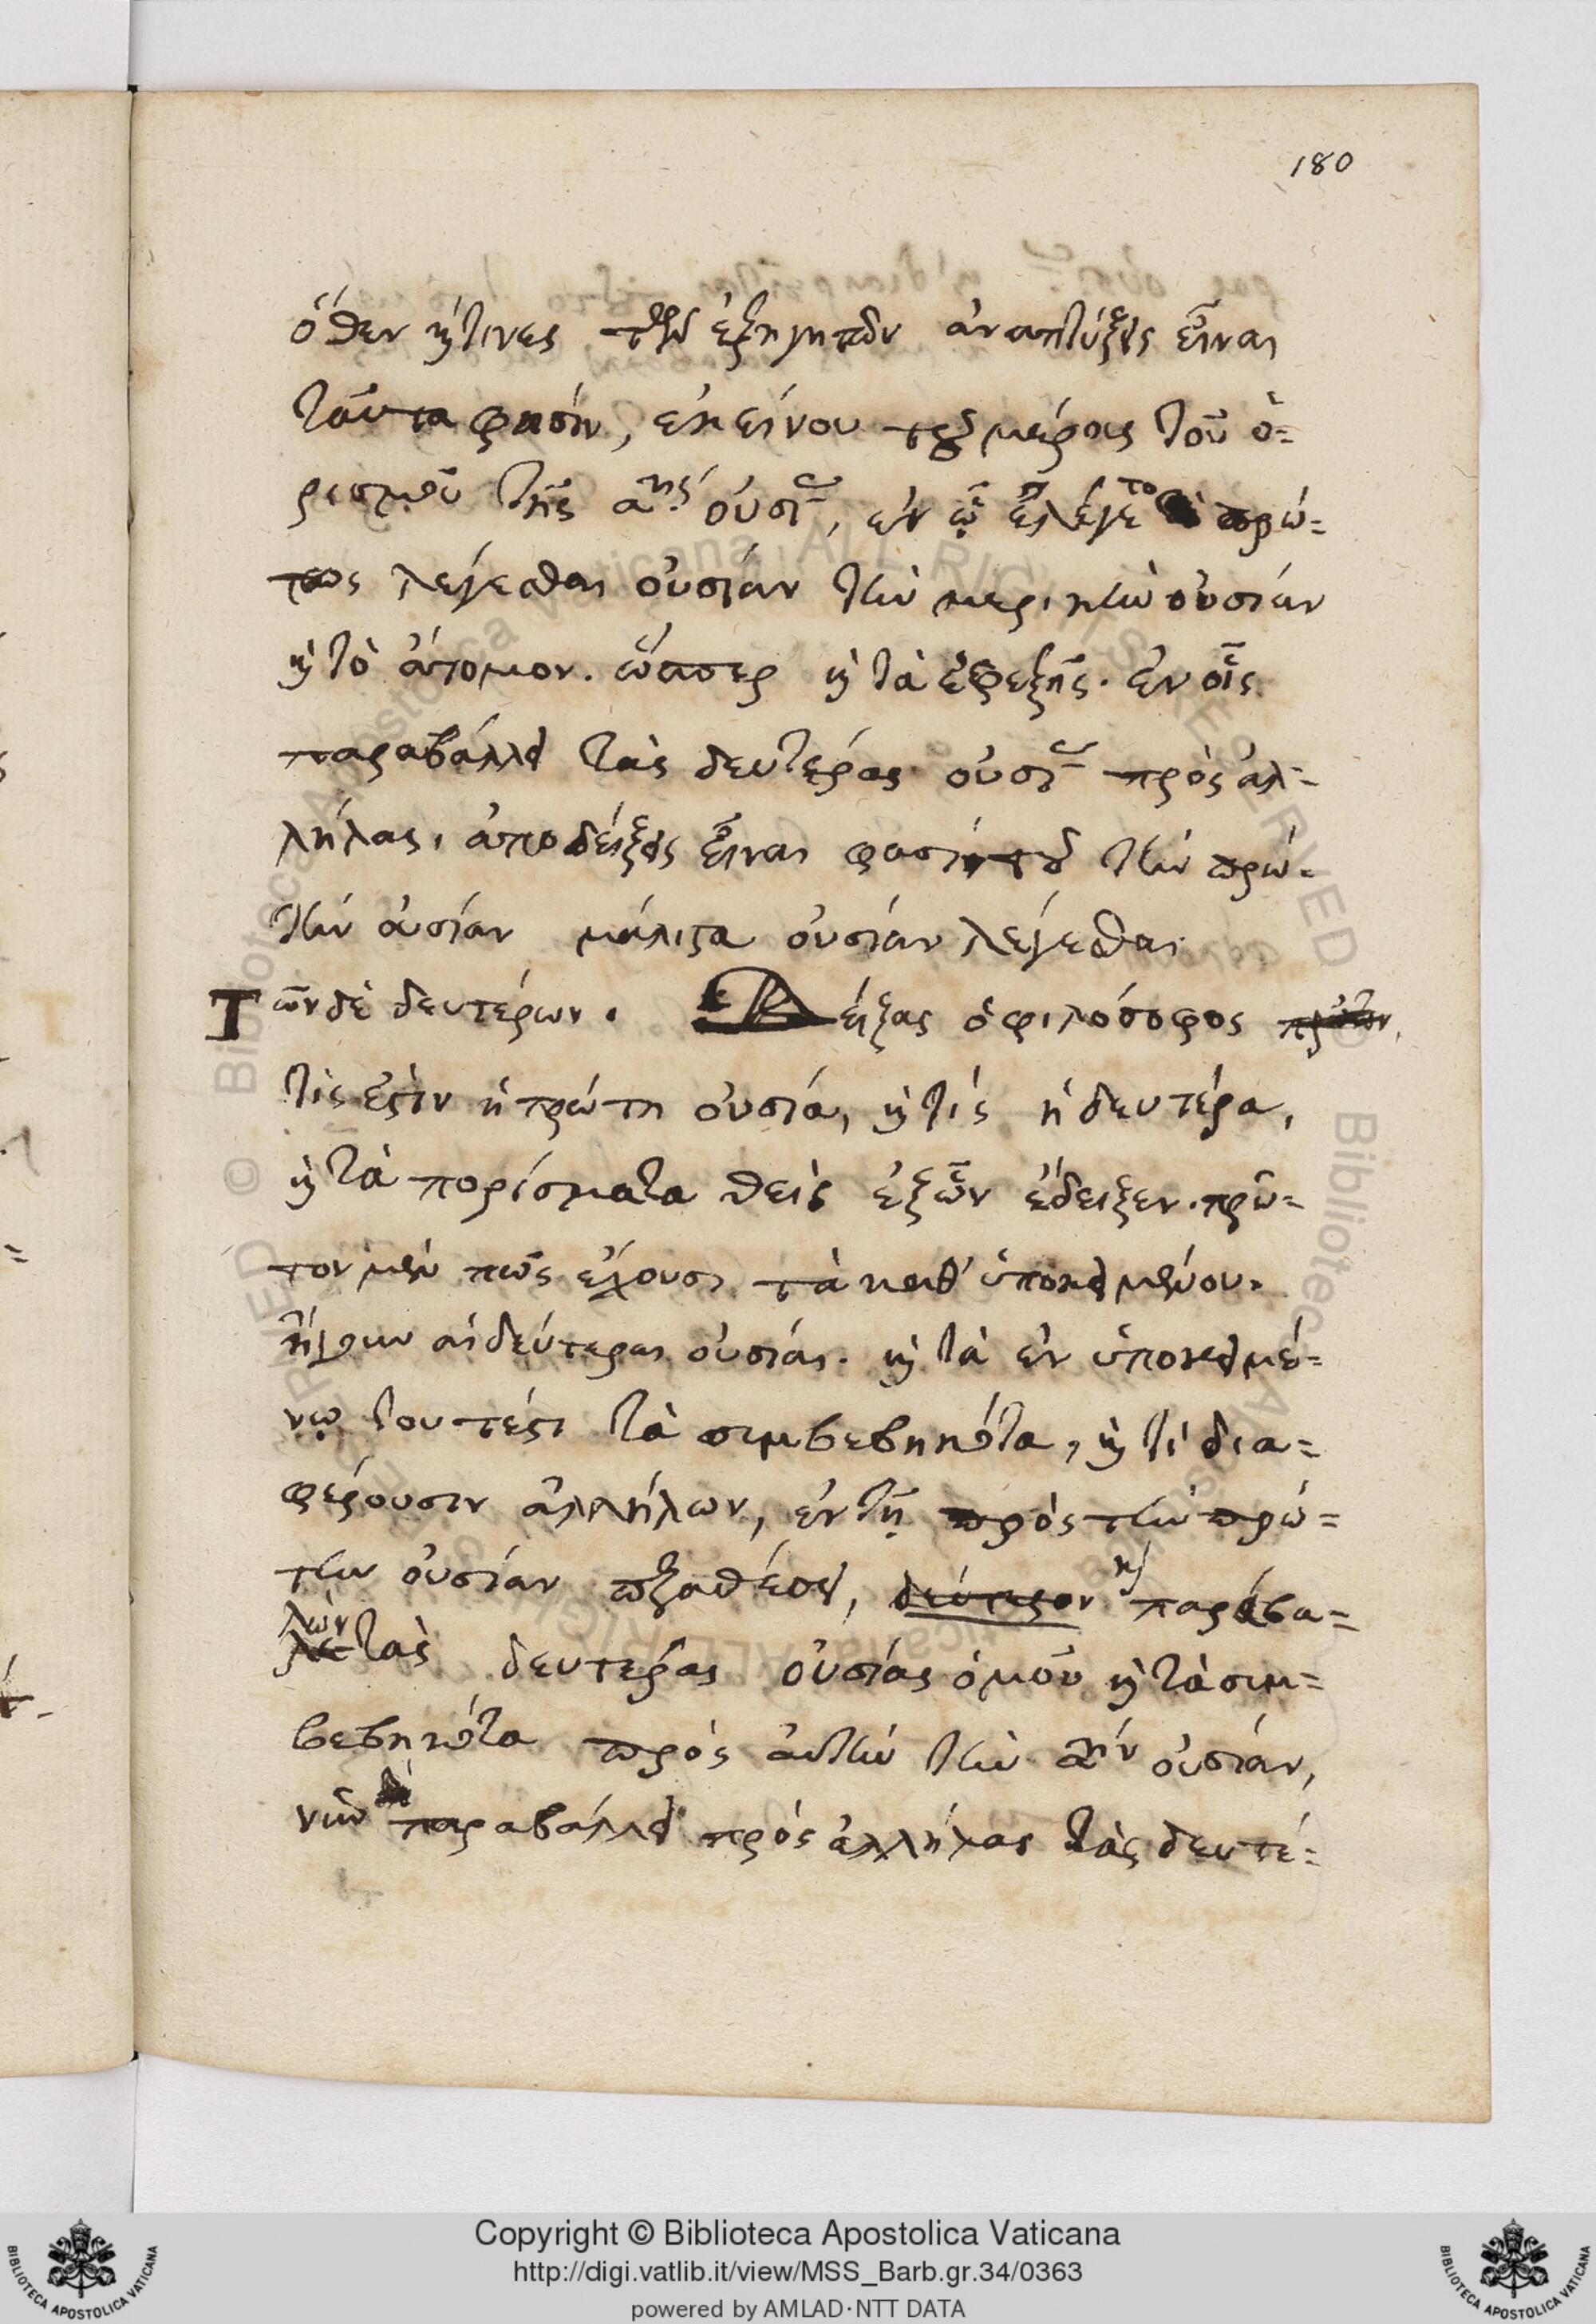 180
ὅθεν καί τινες τῶν ἐξηγητῶν ἀναπτύξεις εἶναι
ταῦτα φασίν, ἐκείνου τοῦ μέρους τοῦ ὁ=
ρισμοῦ τῆς αης οὐσί, ἐν ᾧ ἐλέγετο πρώ=
τως λέγεσθαι οὐσίαν τὴν μερικὴν οὐσίαν
καὶ τὸ ἄτομον. ὥσπερ καὶ τὰ ἐφεξῆς. ἐν οἷς
παραβάλλει τὰς δευτέρας οὐσί πρὸς ἀλ=
λήλας, ἀποδείξεις εἶναι φασὶ τοῦ τὴν πρώ=
την οὐσίαν μάλιστα οὐσίαν λέγεσθαι
Τῶν δὲ δευτέρων. Δείξας ὁ φιλόσοφος πρῶτον,
τίς ἐστιν ἡ πρώτη οὐσία, καὶ τίς ἡ δευτέρα,
καὶ τὰ πορίσματα θεὶς ἐξ ὧν ἔδειξεν. πρῶ=
τον μὲν πῶς ἔχουσι τὰ καθ' ὑποκειμένου.
ἤγουν αἱ δεύτεραι οὐσίαι. καὶ τὰ ἐν ὑποκειμέ=
νῳ τουτέστι τὰ συμβεβηκότα, καὶ τί δια=
φέρουσιν ἀλλήλων, ἐν τῇ πρὸς τὴν πρώ=
την οὐσίαν παραθέσει, δεύτερον καὶ παραβα=
λὼν τὰς δευτέρας οὐσίας ὁμοῦ καὶ τὰ συμ=
βεβηκότα πρὸς αὐτὴν τὴν αην οὐσίαν,
νῦν παραβάλλει πρὸς ἀλλήλας τὰς δευτέ=
Copyright © Biblioteca Apostolica Vaticana
http://digi.vatlib.it/view/MSS_Barb.gr.34/0363
powered by AMLAD·NTT DATA
BIBLIOTECA APOSTOLICA VATICANA
BIBLIOTECA APOSTOLICA VATICANA